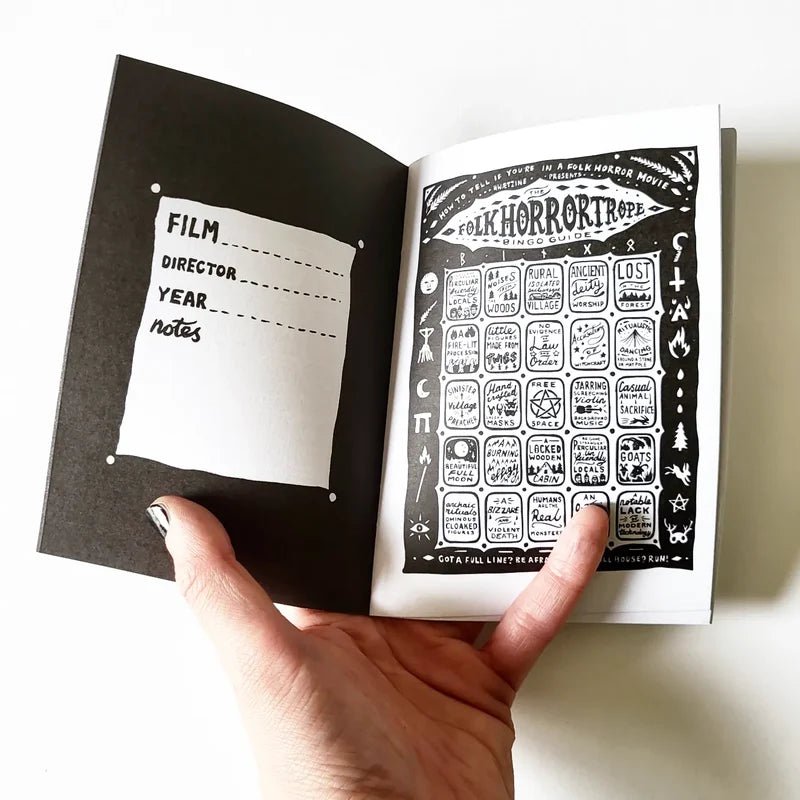 FILM
DIRECTOR
YEAR
notes
HOW TO TELL IF YOU'RE IN A FOLK HORROR MOVIE
PRESENTS
THE
FOLK HORROR TROPE
BINGO GUIDE
PECULIAR
friendly
LOCALS
NOISES
IN THE
WOODS
RURAL
ISOLATED
VILLAGE
ANCIENT
deity
WORSHIP
LOST
IN THE
FOREST
A
FIRE-LIT
PROCESSION
little
FIGURES
MADE FROM
TWIGS
NO
EVIDENCE
OF
Law
OR
Order
Accusation
OF
WITCHCRAFT
RITUALISTIC
DANCING
AROUND A STONE
OR MAYPOLE
SINISTER
Village
PREACHER
Hand
crafted
MASKS
FREE
SPACE
JARRING
SCREECHING
Violin
BACKGROUND
MUSIC
Casual
ANIMAL
SACRIFICE
A
BEAUTIFUL
FULL MOON
BURNING
effigy
A
LACKED
WOODEN
CABIN
PECULIARLY
un
friendly
LOCALS
GOATS
archaic
rituals
OMINOUS
CLOAKED
FIGURES
A
BIZZARE
AND
VIOLENT
DEATH
HUMANS
ARE THE
Real
MONSTERS
AN
notable
LACK
OF
MODERN
technology
GOT A FULL LINE? BE AFRAI
LL HOUSE? RUN!